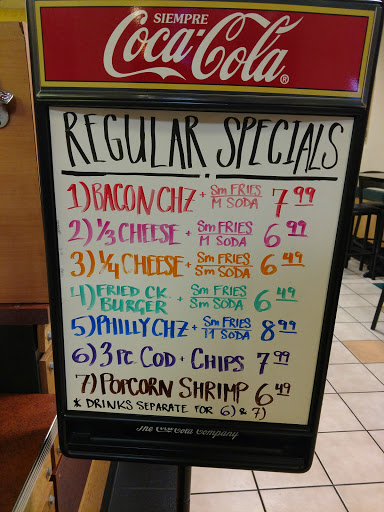 SIEMPRE
Coca-Cola®
REGULAR SPECIALS
1) BACON CHZ + Sm FRIES M SODA 7 99
2) 1/3 CHEESE + Sm FRIES M SODA 6 99
3) 1/4 CHEESE + Sm FRIES Sm SODA 6 49
4) FRIED CK. BURGER + Sm FRIES Sm SODA 6 49
5) PHILLY CHZ + Sm FRIES M SODA 8 99
6) 3 PC COD + CHIPS 7 99
7) POPCORN SHRIMP 6 49
* DRINKS SEPARATE FOR 6) & 7)
The Coca-Cola Company